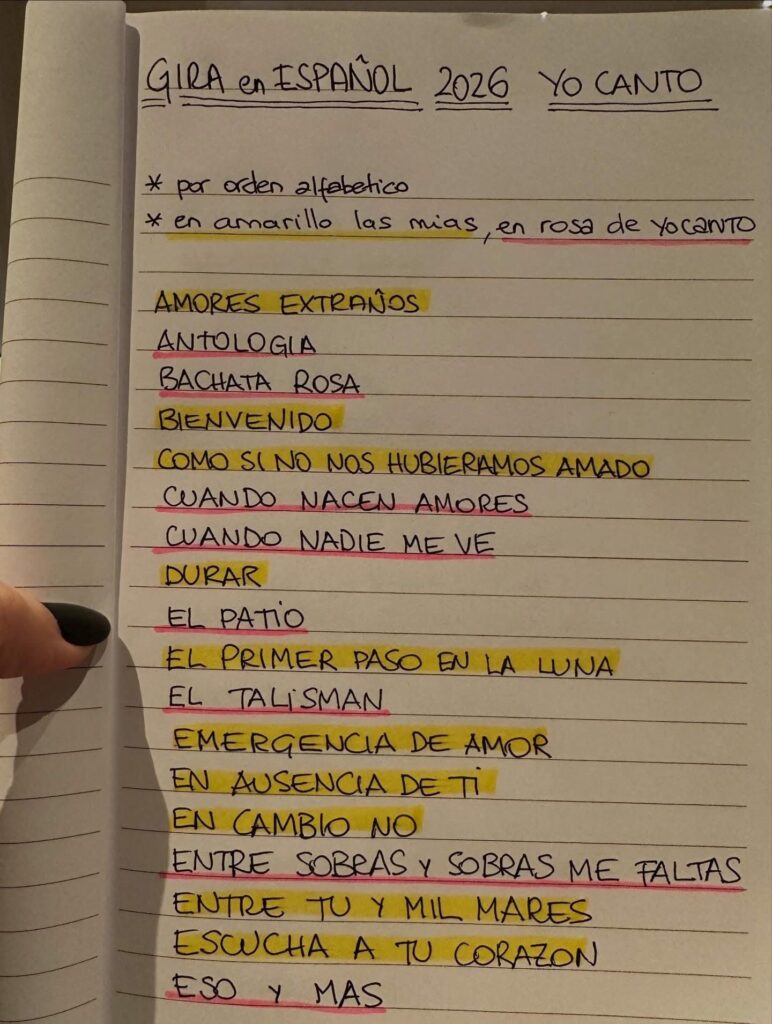 GIRA en ESPAÑOL 2026 YO CANTO
* por orden alfabetico
* en amarillo las mias, en rosa de YOCANTO
AMORES EXTRAÑOS
ANTOLOGIA
BACHATA ROSA
BIENVENIDO
COMO SI NO NOS HUBIERAMOS AMADO
CUANDO NACEN AMORES
CUANDO NADIE ME VE
DURAR
EL PATIO
EL PRIMER PASO EN LA LUNA
EL TALISMAN
EMERGENCIA DE AMOR
EN AUSENCIA DE TI
EN CAMBIO NO
ENTRE SOBRAS Y SOBRAS ME FALTAS
ENTRE TU Y MIL MARES
ESCUCHA A TU CORAZON
ESO Y MAS